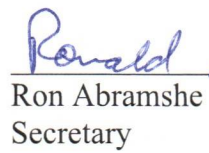 Ronald
Ron Abramshe
Secretary